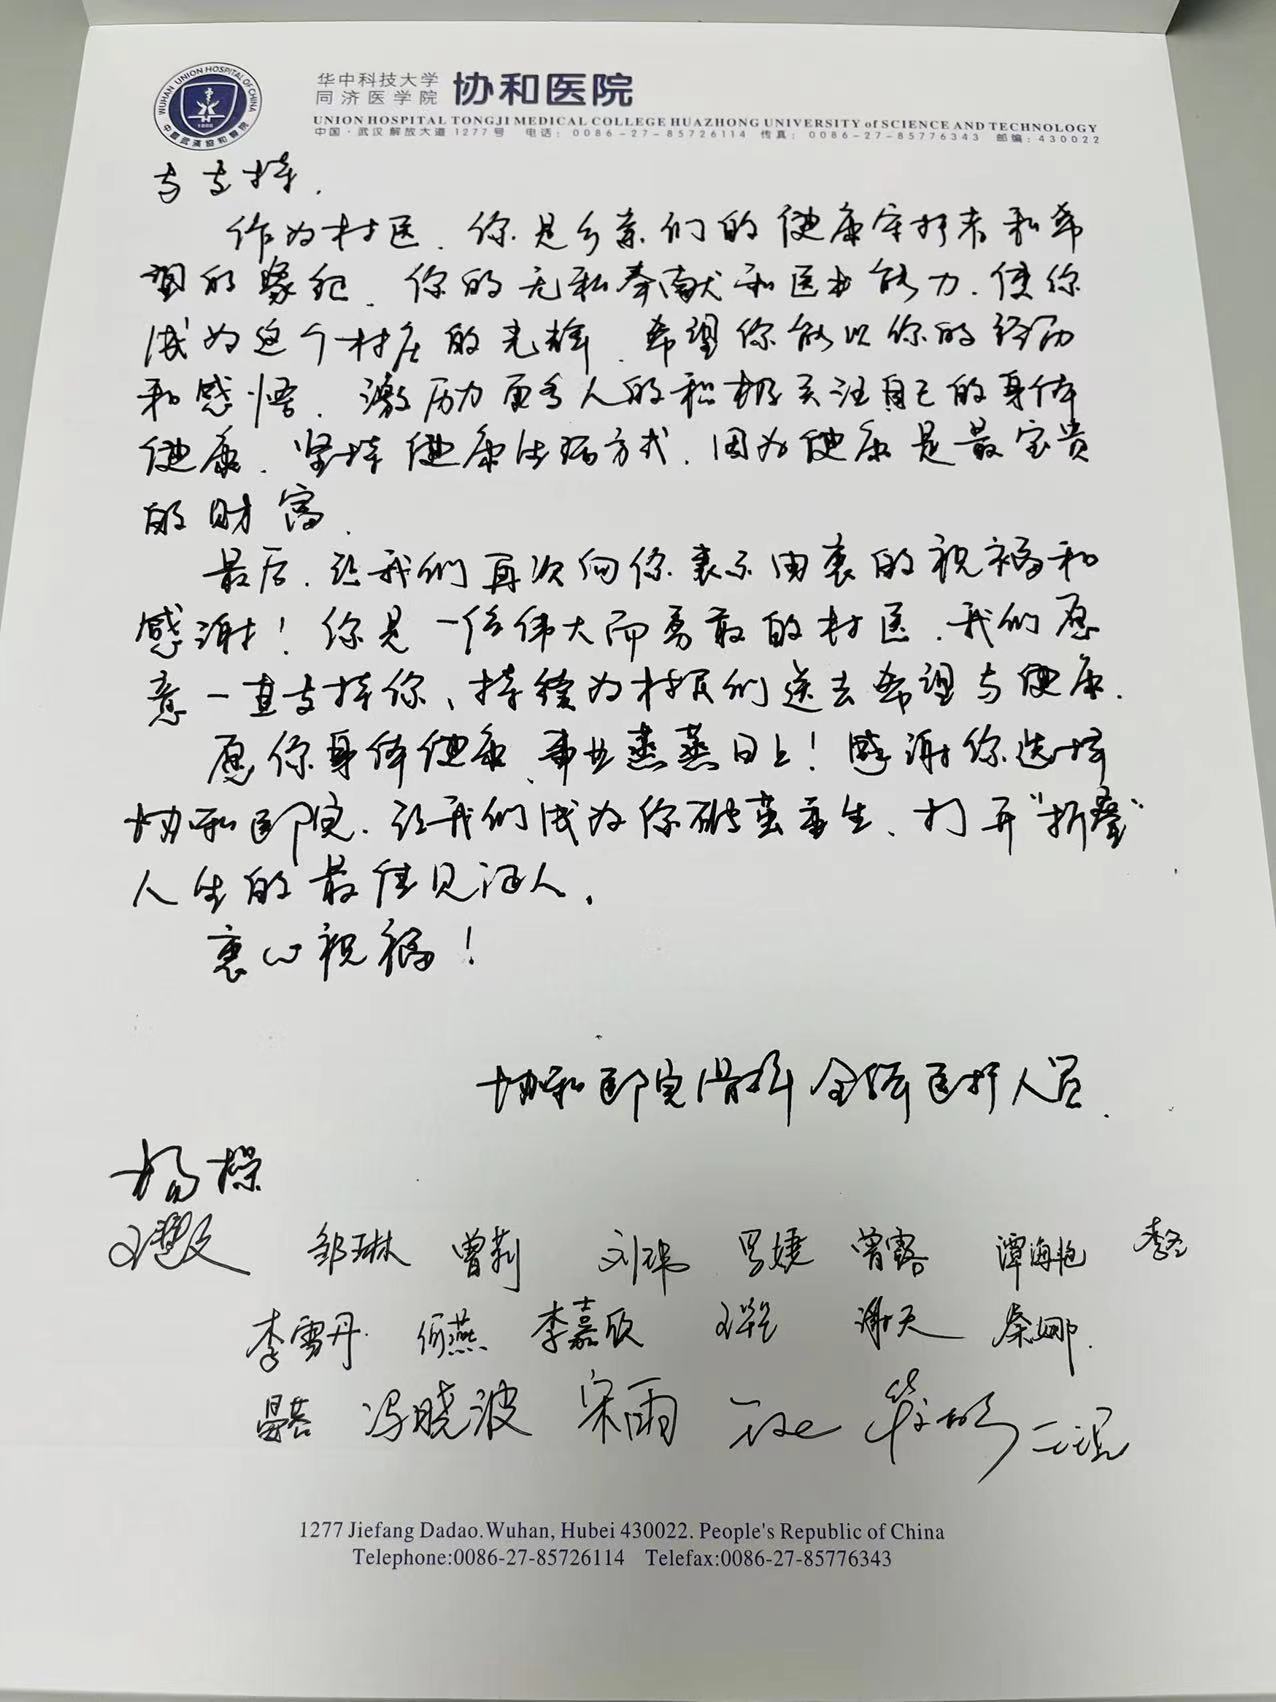 WUHAN UNION HOSPITAL OF CHINA
中國武漢協和醫院
华中科技大学
同济医学院
协和医院
UNION HOSPITAL TONGJI MEDICAL COLLEGE HUAZHONG UNIVERSITY of SCIENCE AND TECHNOLOGY
中国·武汉解放大道1277号 电话：0086-27-85726114 传真：0086-27-85776343 邮编：430022
与支持.
作为村医、你是乡亲们的健康守护者和希
望的象征、你的无私奉献和医术能力、使你
成为这个村庄的光辉、希望你能以你的经历
和感悟、激励更多人的积极关注自己的身体
健康、坚持健康生活方式、因为健康是最宝贵
的财富、
最后、让我们再次向你表示由衷的祝福和
感谢！你是一位伟大而勇敢的村医、我们愿
意一直支持你、持续为村民们送去希望与健康.
愿你身体健康、事业蒸蒸日上！感谢你选择
协和医院、让我们成为你破茧重生、打开"折叠"
人生的最佳见证人.
衷心祝福！
协和医院骨科全体医护人员.
杨操
邹琳 曾莉 刘玮 罗婕 曾露 谭海艳
李雪丹 何燕 李嘉欣 谢天 秦娜
冯晓波 宋雨
1277 Jiefang Dadao.Wuhan, Hubei 430022. People's Republic of China
Telephone:0086-27-85726114 Telefax:0086-27-85776343